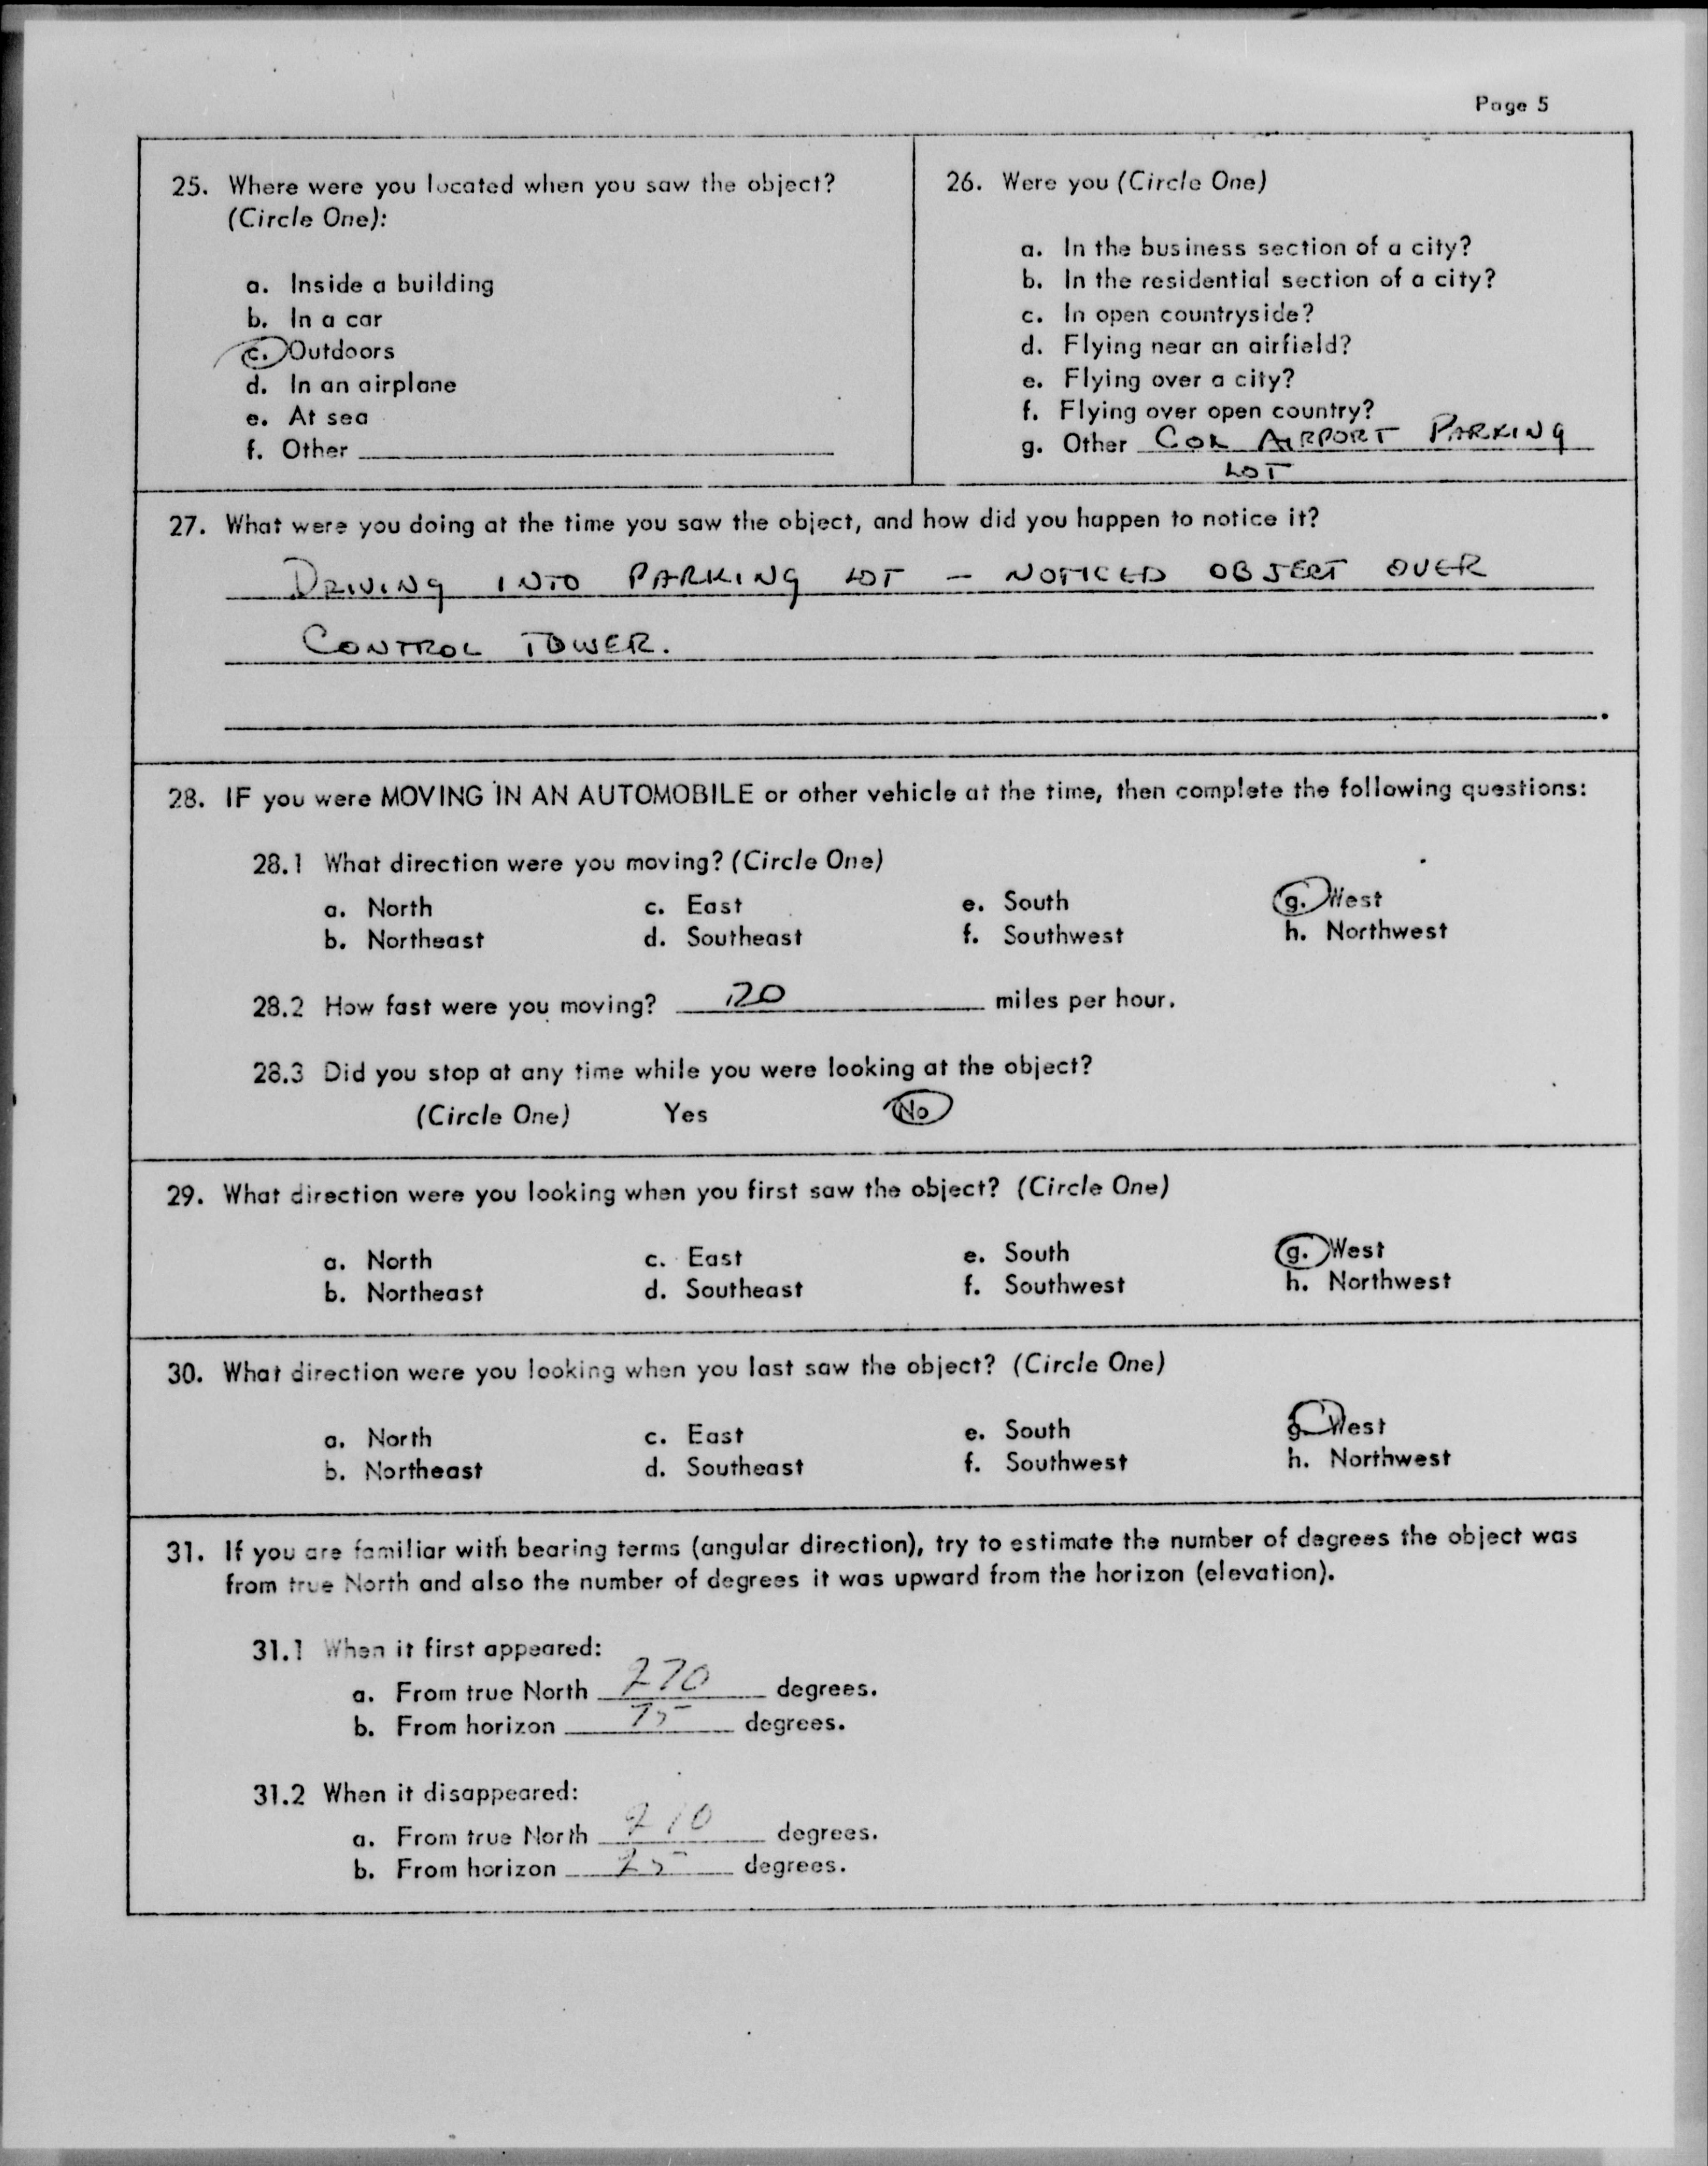 Page 5
25. Where were you located when you saw the object?
(Circle One):
a. Inside a building
b. In a car
c. Outdoors
d. In an airplane
e. At sea
f. Other
26. Were you (Circle One)
a. In the business section of a city?
b. In the residential section of a city?
c. In open countryside?
d. Flying near an airfield?
e. Flying over a city?
f. Flying over open country?
g. Other COL AIRPORT PARKING
LOT
27. What were you doing at the time you saw the object, and how did you happen to notice it?
DRIVING INTO PARKING LOT - NOTICED OBJECT OVER
CONTROL TOWER.
28. IF you were MOVING IN AN AUTOMOBILE or other vehicle at the time, then complete the following questions:
28.1 What direction were you moving? (Circle One)
a. North c. East e. South g. West
b. Northeast d. Southeast f. Southwest h. Northwest
28.2 How fast were you moving? 20 miles per hour.
28.3 Did you stop at any time while you were looking at the object?
(Circle One) Yes No
29. What direction were you looking when you first saw the object? (Circle One)
a. North c. East e. South g. West
b. Northeast d. Southeast f. Southwest h. Northwest
30. What direction were you looking when you last saw the object? (Circle One)
a. North c. East e. South g. West
b. Northeast d. Southeast f. Southwest h. Northwest
31. If you are familiar with bearing terms (angular direction), try to estimate the number of degrees the object was
from true North and also the number of degrees it was upward from the horizon (elevation).
31.1 When it first appeared:
a. From true North 270 degrees.
b. From horizon 75 degrees.
31.2 When it disappeared:
a. From true North 210 degrees.
b. From horizon 25 degrees.